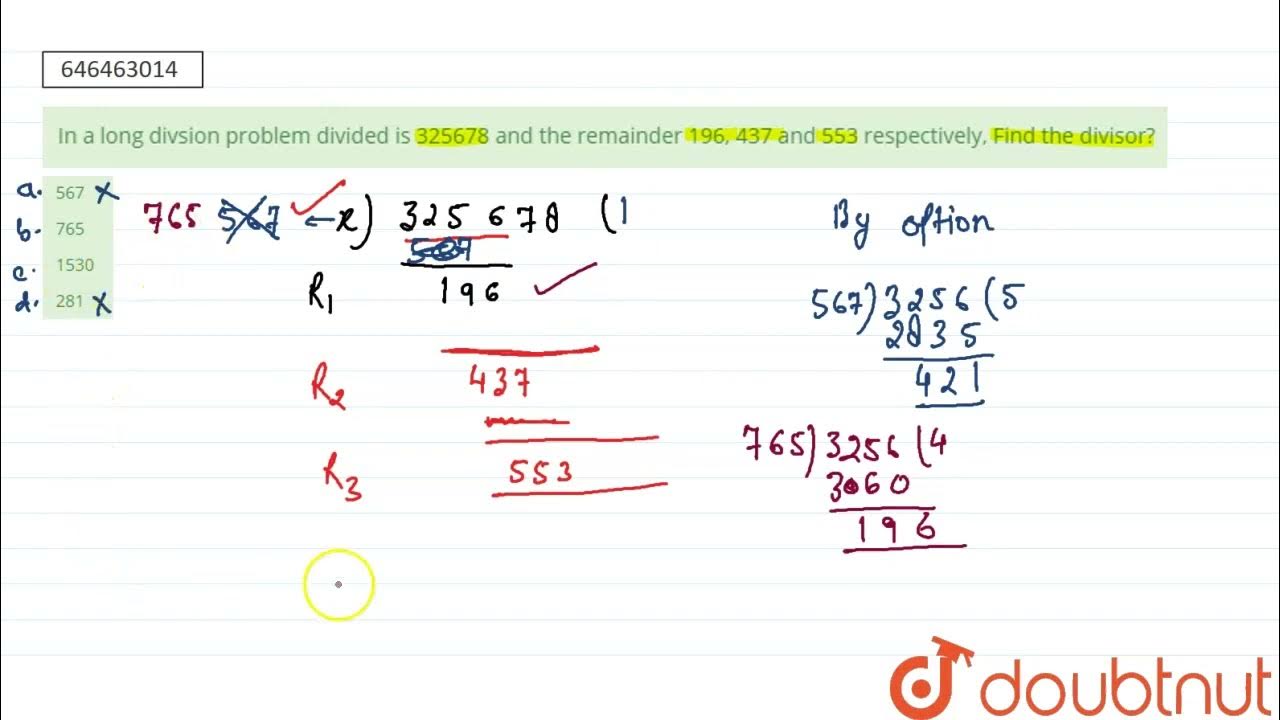 646463014
In a long divsion problem divided is 325678 and the remainder 196, 437 and 553 respectively, Find the divisor?
a. 567 x
b. 765
c. 1530
d. 281 x
765 567 ← x) 325 678 (1
567
R1 196 ✓
R2 437
R3 553
By option
567) 3256 (5
2835
421
765) 3256 (4
3060
196
doubtnut